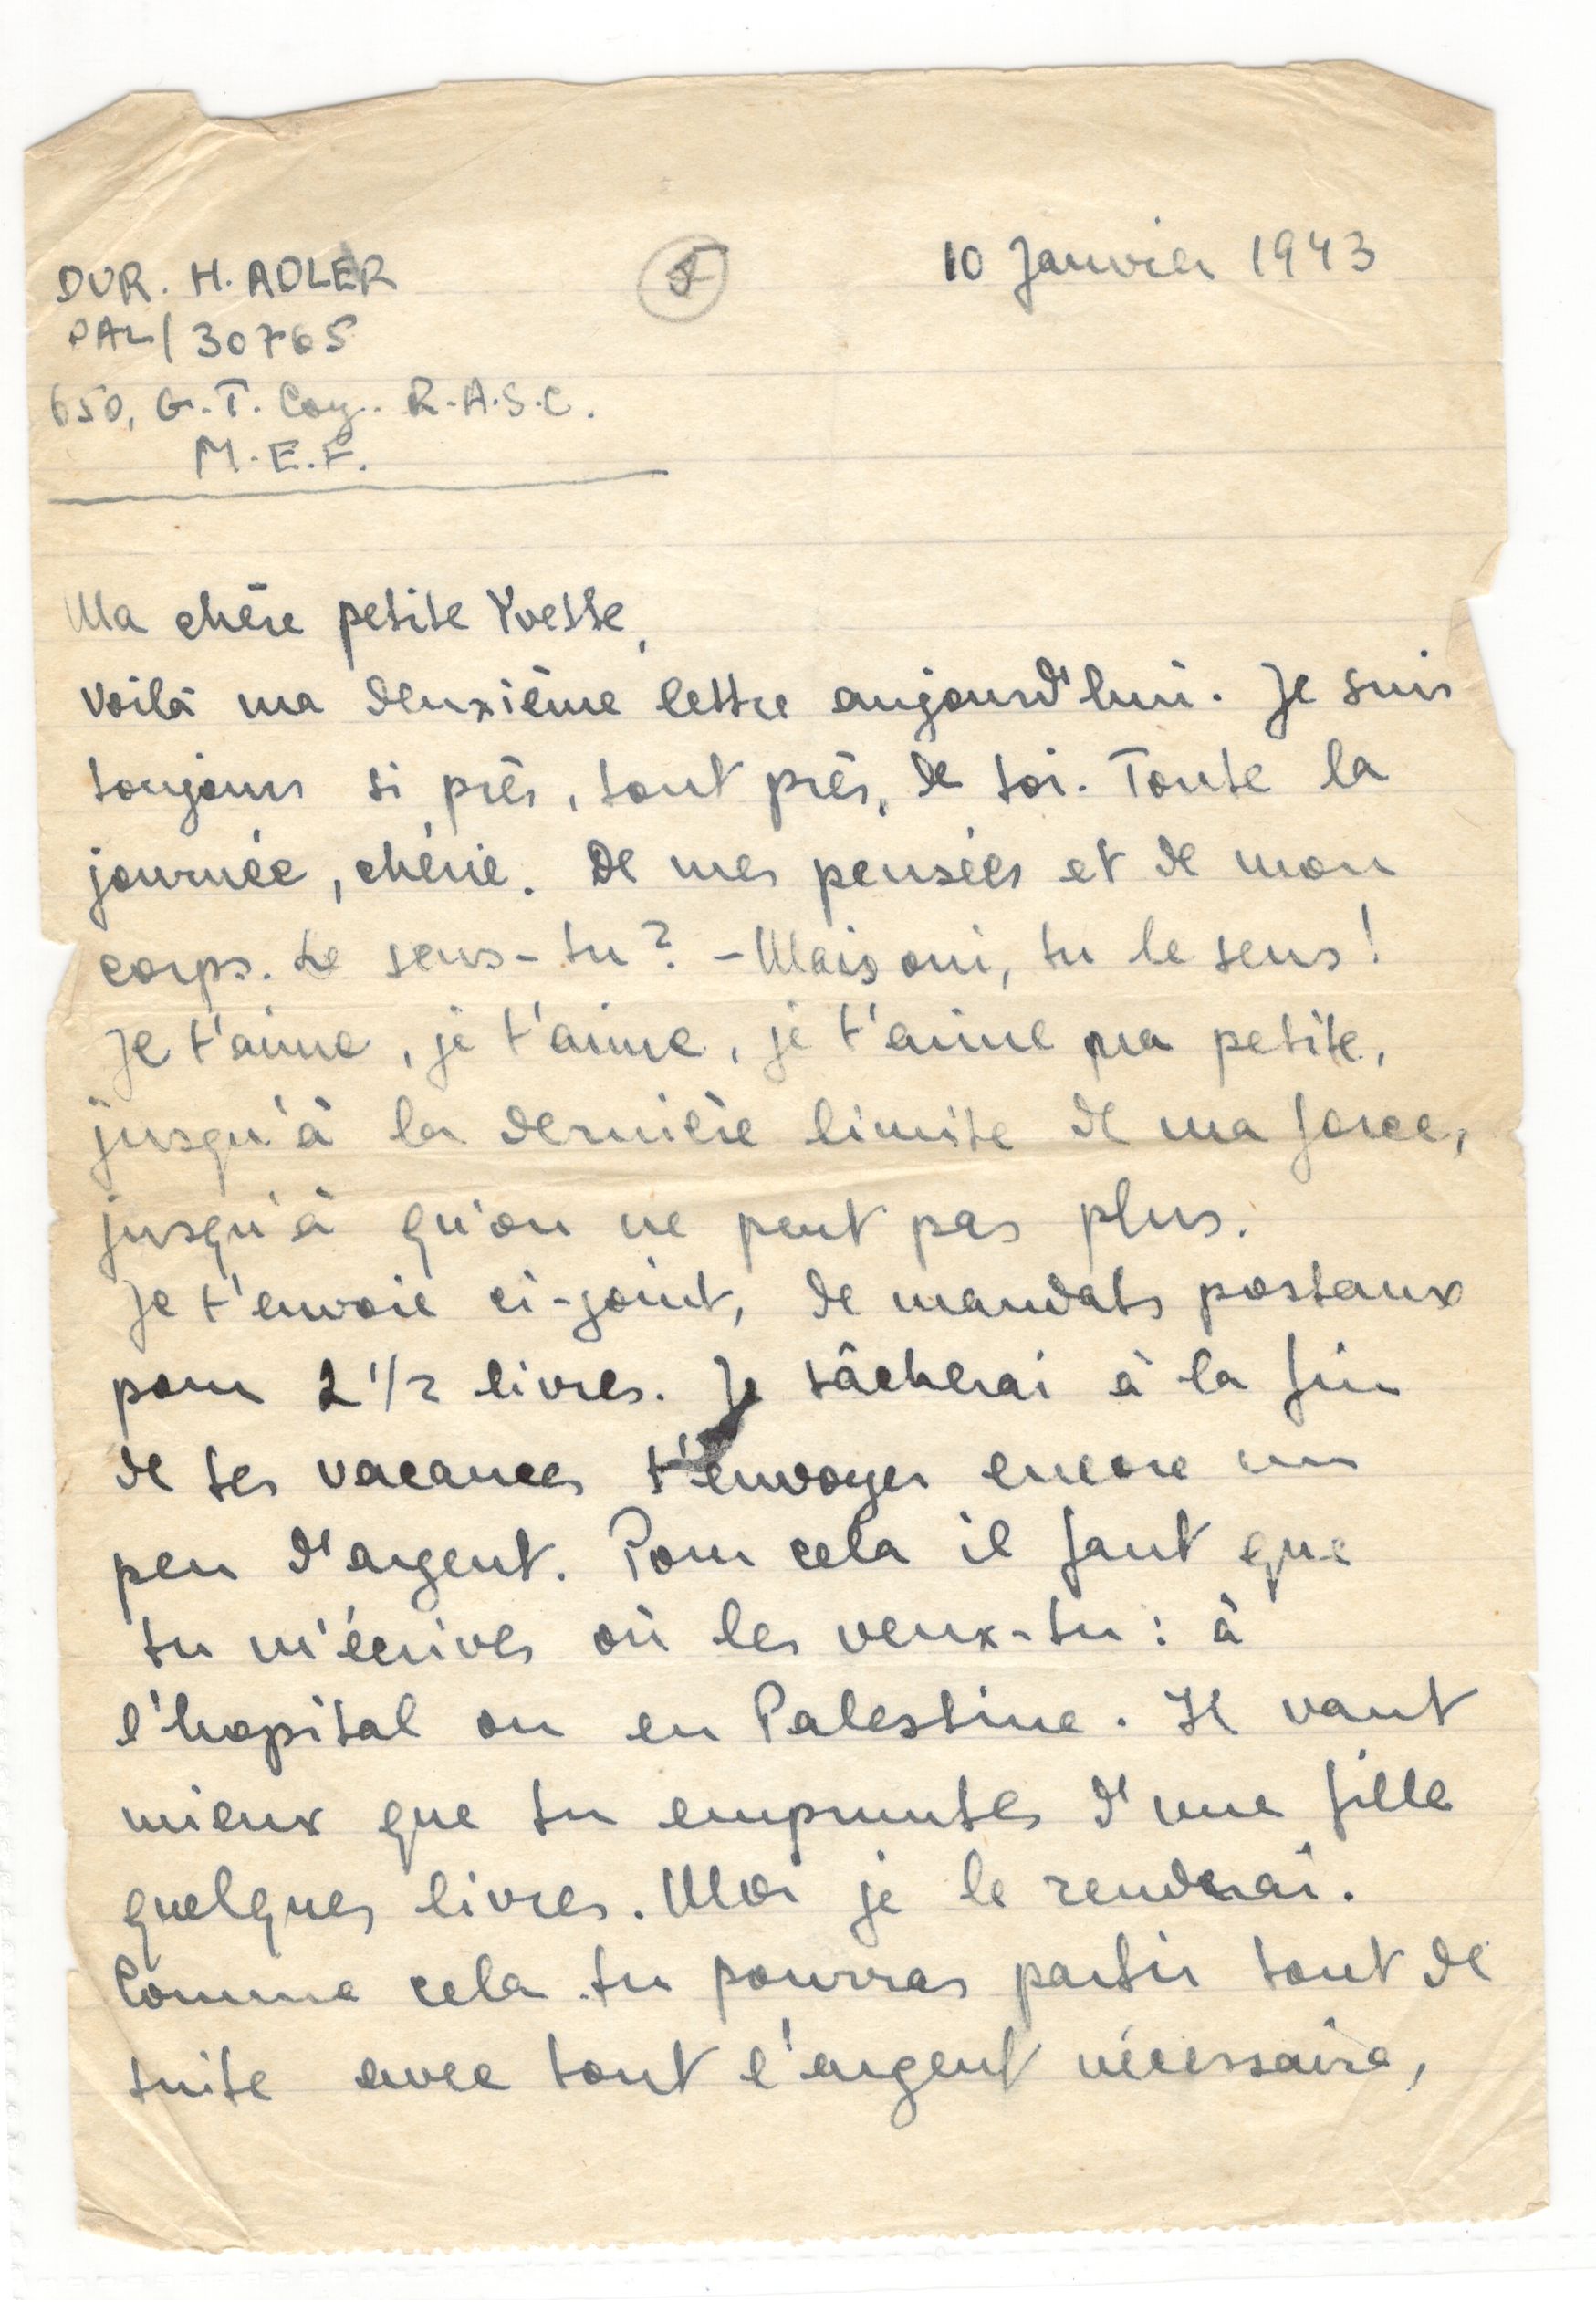 DVR. H. ADLER
PAL/30765
650, G.T. Coy. R.A.S.C.
M.E.F.
5
10 Janvier 1943
Ma chère petite Yvette,
Voilà ma deuxième lettre aujourd'hui. Je suis
toujours si près, tout près, de toi. Toute la
journée, chérie. De mes pensées et de mon
corps. Le sens-tu? - Mais oui, tu le sens!
Je t'aime, je t'aime, je t'aime ma petite,
jusqu'à la dernière limite de ma force,
jusqu'à qu'on ne peut pas plus.
Je t'envoie ci-joint, de mandats postaux
pour 2 1/2 livres. Je tâcherai à la fin
de tes vacances t'envoyer encore un
peu d'argent. Pour cela il faut que
tu m'écrives où les veux-tu: à
l'hopital ou en Palestine. Il vaut
mieux que tu empruntes d'une fille
quelques livres. Moi je le renderai.
Comme cela tu pourras partir tout de
suite avec tout l'argent nécessaire,